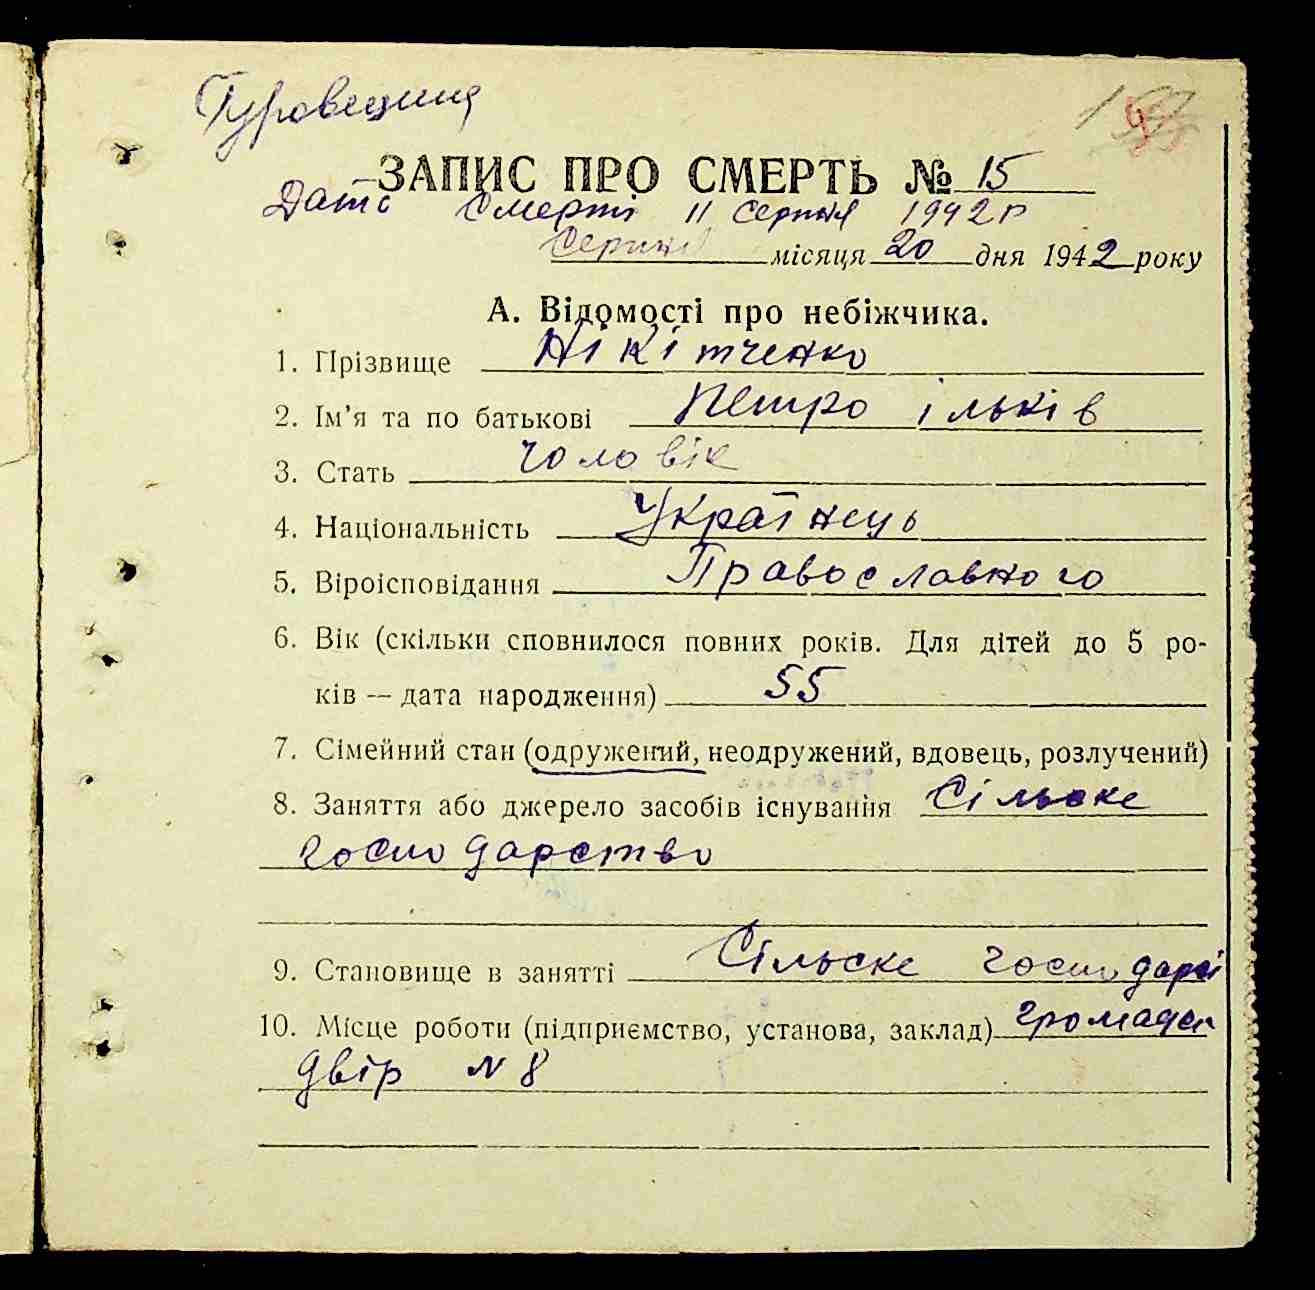 Туровещина
ЗАПИС ПРО СМЕРТЬ № 15
Дата смерті 11 Серпня 1942 р
Серпня місяця 20 дня 1942 року
А. Відомості про небіжчика.
1. Прізвище Нікітченко
2. Ім'я та по батькові Петро ільків
3. Стать чоловік
4. Національність Українець
5. Віроісповідання Православного
6. Вік (скільки сповнилося повних років. Для дітей до 5 ро-
ків — дата народження) 55
7. Сімейний стан (одружений, неодружений, вдовець, розлучений)
8. Заняття або джерело засобів існування Сільске
господарство
9. Становище в занятті Сільске господарсі
10. Місце роботи (підприємство, установа, заклад) громадс
двір N 8